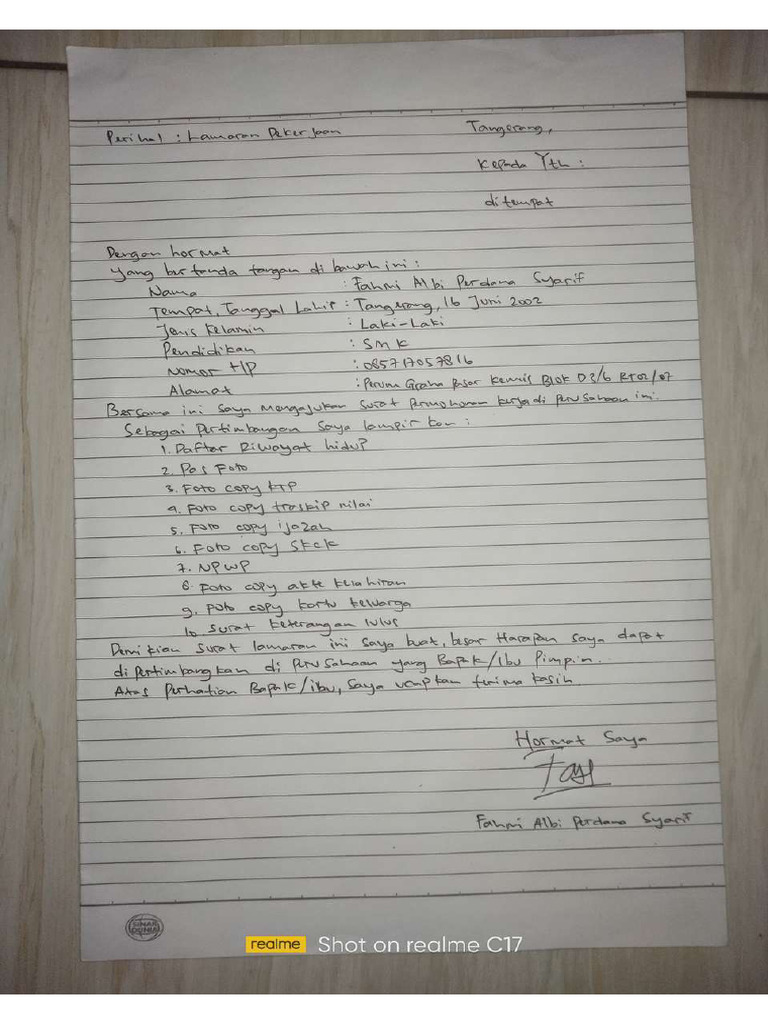 Perihal : Lamaran Pekerjaan
Tangerang,
Kepada Yth :
ditempat
Dengan hormat
Yang bertanda tangan di bawah ini :
Nama : Fahmi Albi Perdana Syarif
Tempat, Tanggal Lahir : Tangerang, 16 Juni 2002
Jenis Kelamin : Laki-Laki
Pendidikan : SMK
Nomor HP : 085717057816
Alamat : Perum Graha Pasar Kemis Blok D3/6 RT02/07
Bersama ini Saya mengajukan surat permohonan kerja di perusahaan ini.
Sebagai Pertimbangan Saya lampir kan :
1. Daftar Riwayat hidup
2. Pas Foto
3. Foto copy KTP
4. Foto copy traskip nilai
5. Foto copy ijazah
6. Foto copy Skck
7. NPWP
8. Foto copy akte kelahiran
9. Foto copy kartu keluarga
10. Surat keterangan lulus
Demikian Surat lamaran ini Saya buat, besar Harapan Saya dapat
dipertimbangkan di perusahaan yang Bapak/Ibu Pimpin.
Atas Perhatian Bapak/ibu, Saya ucapkan terima kasih
Hormat Saya
Fahmi Albi Perdana Syarif
SINAR DUNIA
realme Shot on realme C17